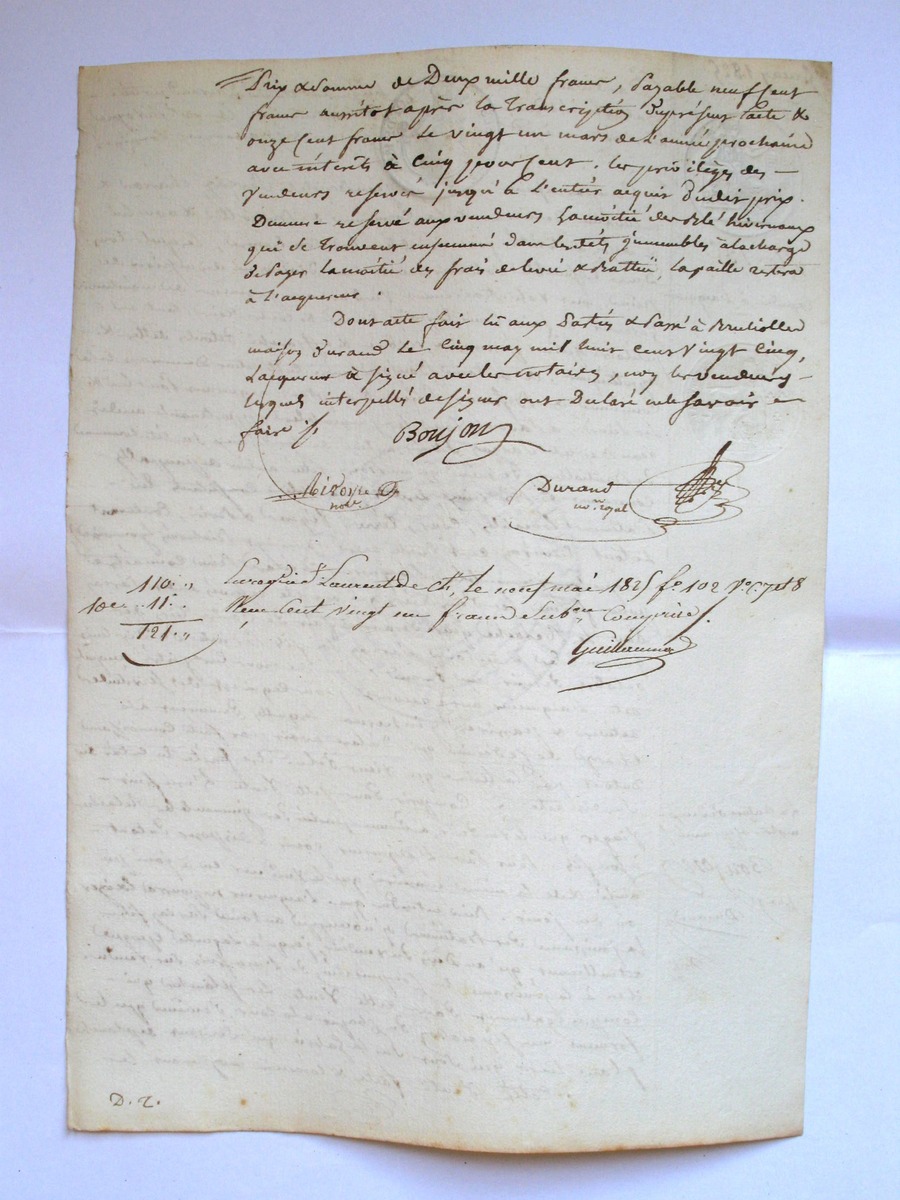 Prix & Somme de Deux mille francs, payable neuf cent
francs aussitôt après la Transcription du présent acte &
onze cent francs le vingt un mars de l'année prochaine
avec intérêts à Cinq pour cent. les privilèges des
Vendeurs reservés jusqu'à l'entier acquis dudit prix.
Demeure reservé aux vendeurs la moitié des blé hivernaux
qui se trouvent ensemencé dans lesdits immeubles à la charge
de payer la moitié des frais de levée & Batture, la paille restera
à l'acquereur.
Dont acte fait lu aux parties & passé à
maison Durand le Cinq may mil huit cent vingt Cinq,
L'acquereur à signé avec les notaires, non les vendeurs
lesquels interpellés de signer ont Declaré ne le savoir
faire
Boujon
notre.
Durand
nore. royal
110. "
10e 11. "
121. "
Enregistré à St Laurent de Ch. le neuf mai 1825 fo 102 Vo C. 7 et 8
Reçu Cent vingt un francs Subon Comprise.
D. T.